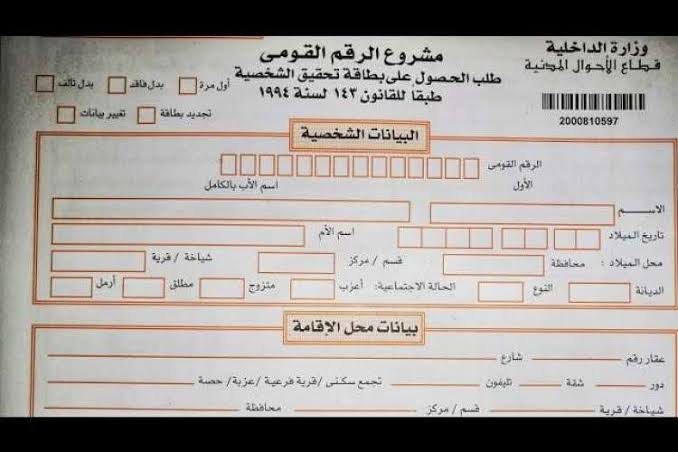 وزارة الداخلية
قطاع الأحوال المدنية
2000810597
مشروع الرقم القومى
طلب الحصول على بطاقة تحقيق الشخصية
طبقاً للقانون ١٤٣ لسنة ١٩٩٤
أول مرة بدل فاقد بدل تالف
تجديد بطاقة تغيير بيانات
البيانات الشخصية
الرقم القومى
الأول اسم الأب بالكامل
الاسم
تاريخ الميلاد اسم الأم
محل الميلاد : محافظة قسم / مركز شياخة / قرية
الديانة النوع الحالة الاجتماعية: أعزب متزوج مطلق أرمل
بيانات محل الإقامة
عقار رقم شارع
دور شقة تليفون تجمع سكنى /قرية فرعية /عزبة/ حصة
شياخة / قرية قسم / مركز محافظة